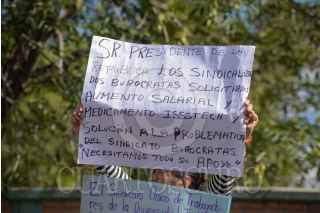 SR. PRESIDENTE DE LA
REPUBLICA LOS SINDICALIZA
DOS BUROCRATAS SOLICITAMOS
AUMENTO SALARIAL Y
MEDICAMENTO ISESTECH Y
SOLUCIÓN A LA PROBLEMATICA
DEL SINDICATO BUROCRATAS
"NECESITAMOS TODO SU APOYO"
de Trabajado
res de la